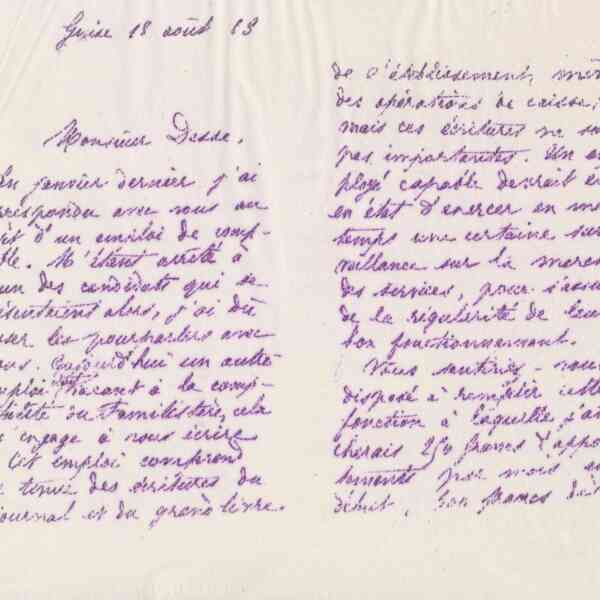 Guise 18 août 13
Monsieur Desse,
En janvier dernier j'ai
rrespondu avec vous au
et d'un emploi de comp-
ble. M'étant arrêté à
un des candidats qui se
ésentaient alors, j'ai dû
ser les pourparlers avec
ous. Aujourd'hui un autre
mploi vacant à la comp-
bilité du Familistère, cela
engage à vous écrire
Cet emploi comprend
tenue des écritures du
journal et du grand livre.
de l'établissement, mê
des opérations de caisse,
mais ces écritures ne so
pas importantes. Un em
ployé capable devrait êt
en état d'exercer en mê
temps une certaine sur
veillance sur la marc
des services, pour s'assu
de la régularité de leur
bon fonctionnement.
Vous sentiriez-vous
disposé à remplir cette
fonction à laquelle j'at
cherais 250 francs d'appo
tements par mois au
début, francs de